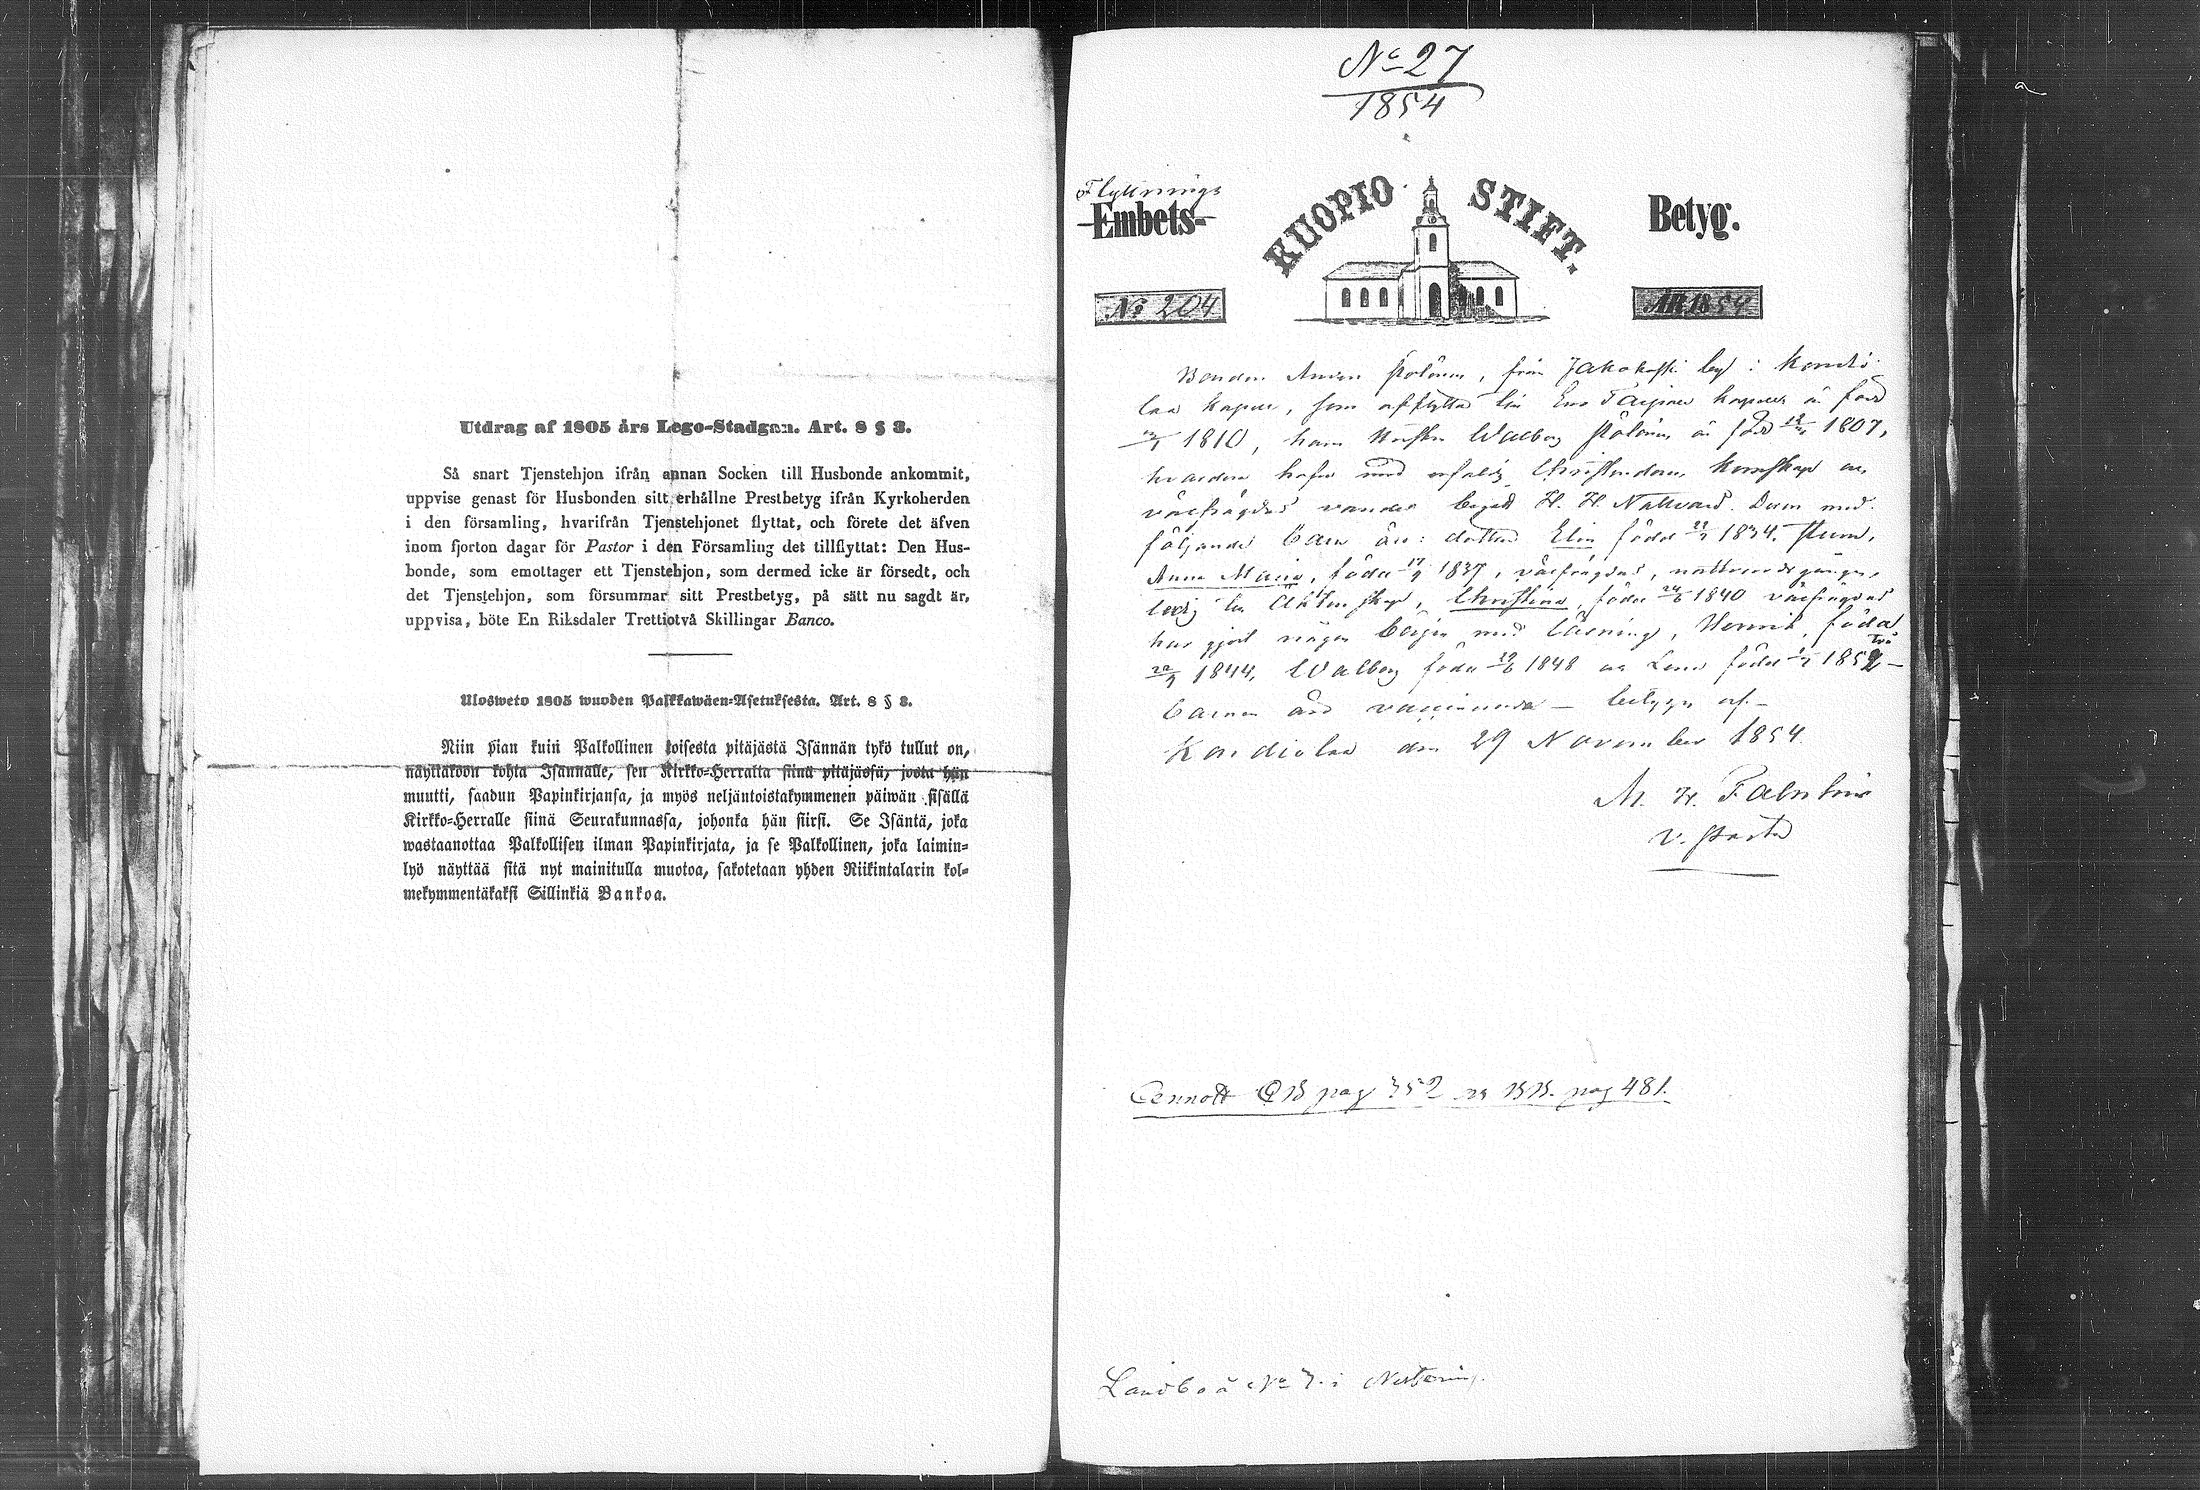 Utdrag af 1805 års Lego-Stadgan. Art. 8 § 3.
Så snart Tjenstehjon ifrån annan Socken till Husbonde ankommit,
uppvise genast för Husbonden sitt erhållne Prestbetyg ifrån Kyrkoherden
i den församling, hvarifrån Tjenstehjonet flyttat, och förete det äfven
inom fjorton dagar för Pastor i den Församling det tillflyttat: Den Hus-
bonde, som emottager ett Tjenstehjon, som dermed icke är försedt, och
det Tjenstehjon, som försummar sitt Prestbetyg, på sätt nu sagdt är,
uppvisa, böte En Riksdaler Trettiotvå Skillingar Banco.
Ulosweto 1805 wuoden Palkkawäen-Asetuksesta. Art. 8 § 3.
Niin pian kuin Palkollinen toisesta pitäjästä Isännän tykö tullut on,
näyttäköön kohta Isännälle, sen Kirkko-Herralta siinä pitäjässä, josta hän
muutti, saadun Papinkirjansa, ja myös neljäntoistakymmenen päiwän sisällä
Kirkko-Herralle siinä Seurakunnassa, johonka hän siirsi. Se Isäntä, joka
wastaanottaa Palkollisen ilman Papinkirjata, ja se Palkollinen, joka laimin-
lyö näyttää sitä nyt mainitulla muotoa, sakotetaan yhden Riikintalarin kol-
mekymmentäkaksi Sillinkiä Bankoa.
No 27
1854
Flyttnings
Embets-
KUOPIO STIFT.
Betyg.
No 204
ÅR 1854
Bonden Anders Pölönen, från Jakokoski by i Kondio
laa kapell, som afflyttar till Eno kapell är född
1810, hans Hustru Walborg Pölönen är född 1807,
hvardera hafva med christendoms kunskap en
välfrägdad vandel begått H. H. Nattvard. Deras med-
följande barn äro: dottren Elin född 1834.
Anna Maria, född 17/9 1837, välfrägdad, nattvardsgången,
ledig till äktenskap, Christina, född 24/6 1840 välfrägdad
har gjort någon början med läsning, född
1844, Walborg född 19/6 1848 och Lena född 1852
Barnen äro vaccinerade – betygas af –
Kondiolaa den 29 November 1854.
M. H.
v. Pastor
Cennott CB pag 352 och BB. pag 481.
Landbo å No 7 i